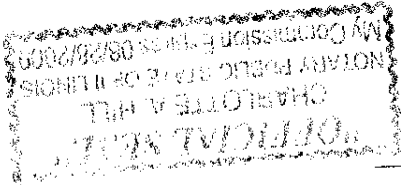 "OFFICIAL SEAL"
CHARLOTTE A. HILL
NOTARY PUBLIC STATE OF ILLINOIS
My Commission Expires 08/28/2000